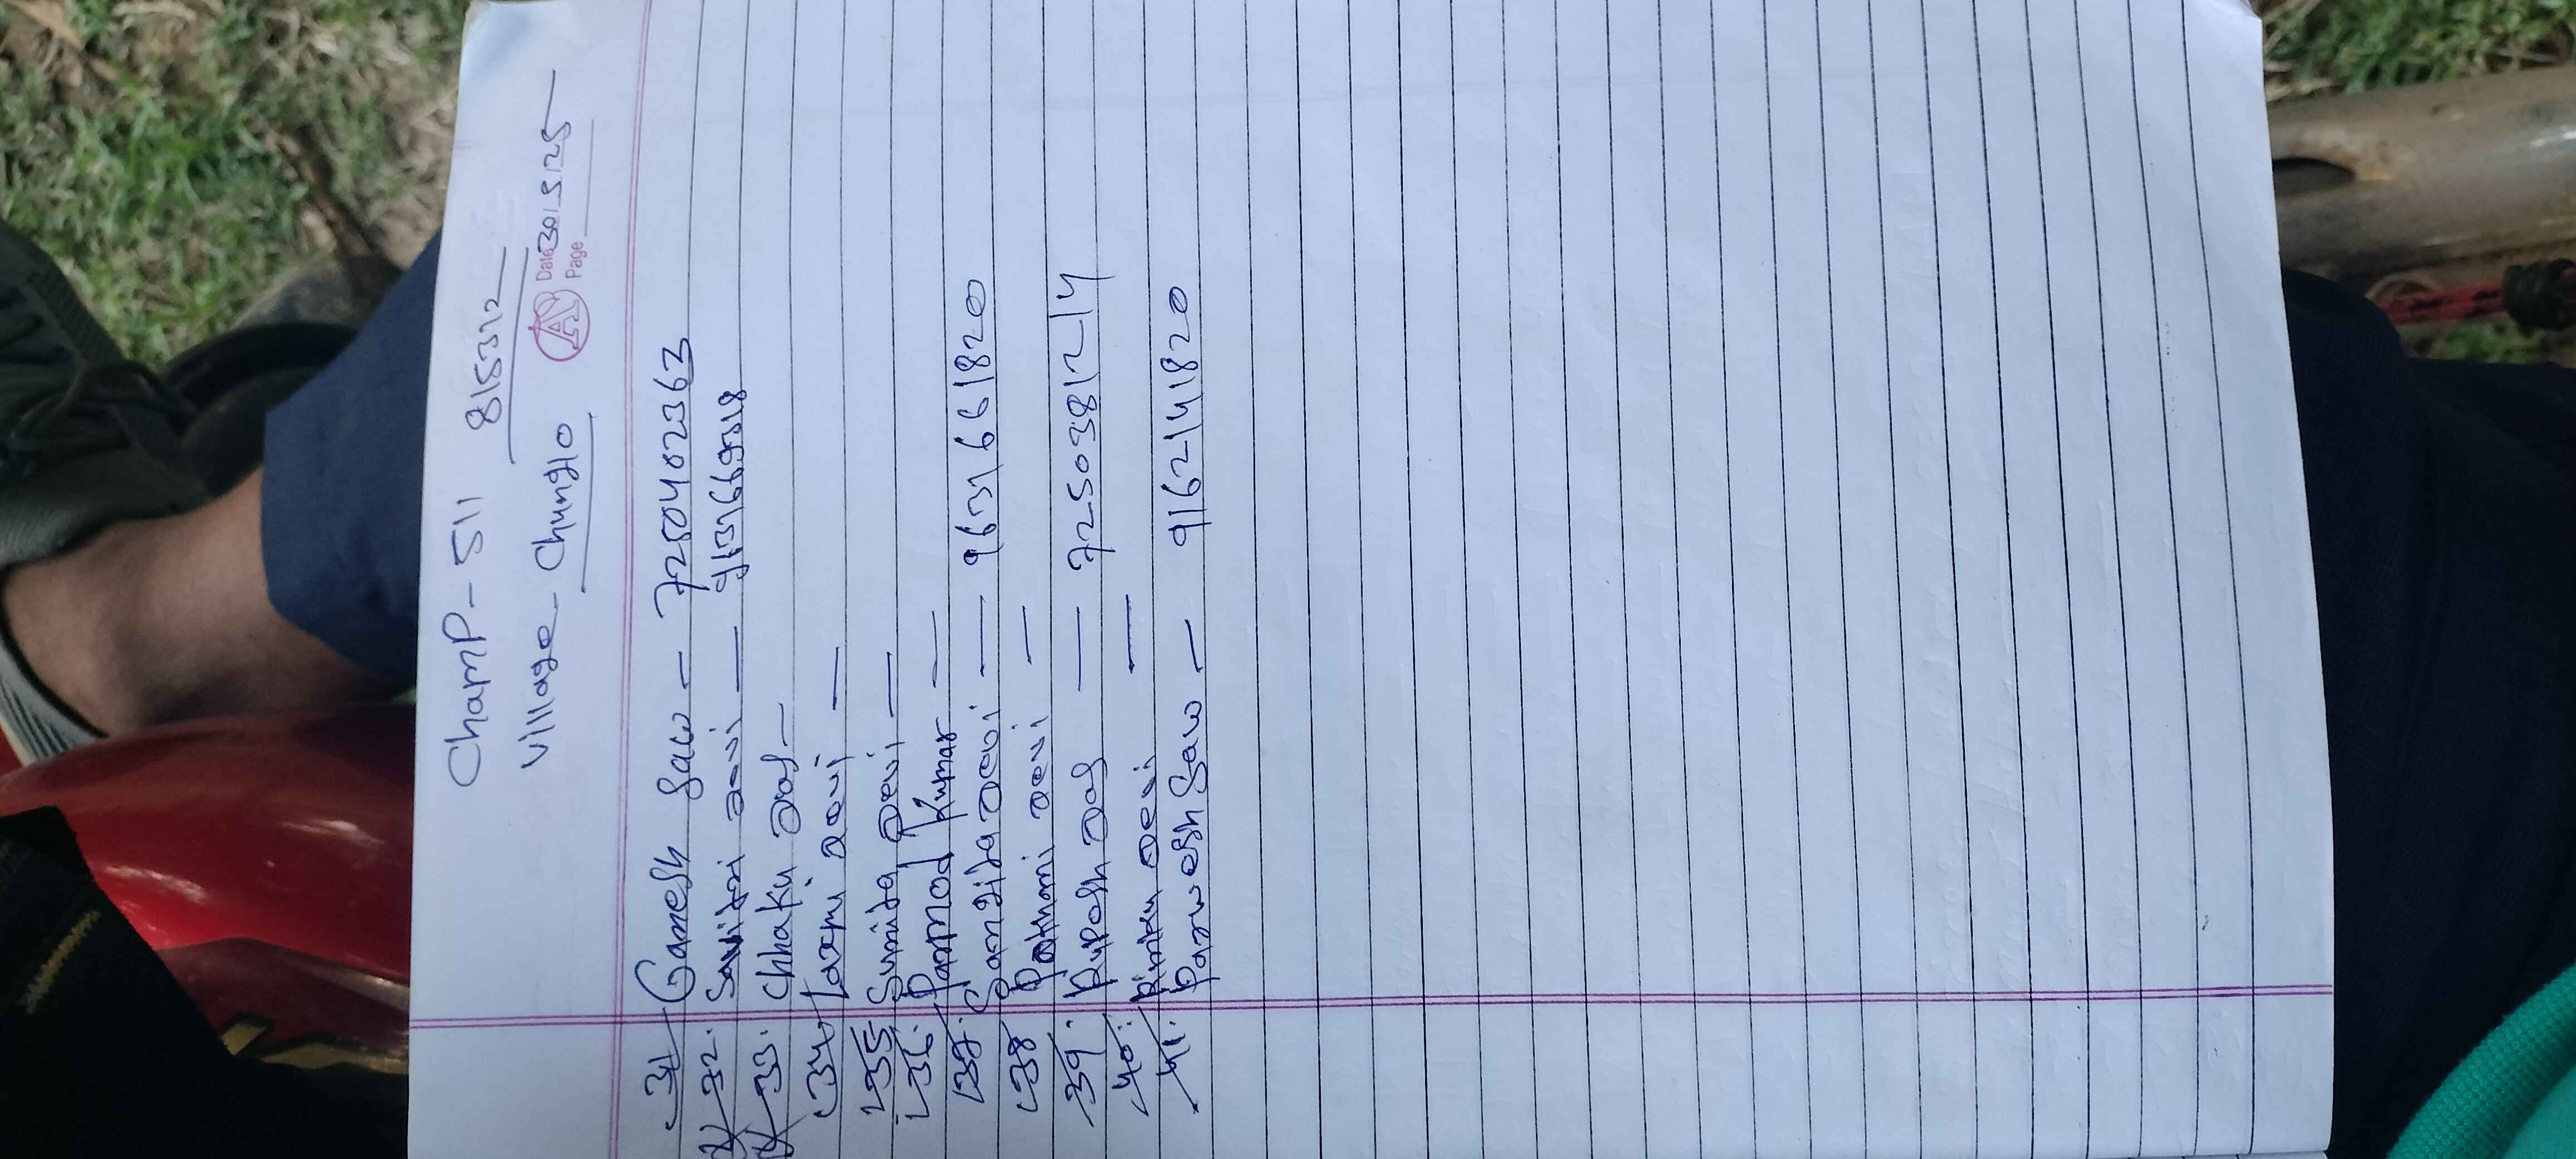 ChamP - 511 815312
Village - Chunglo
AS Date 30/5/25
Page
31 Ganesh Saw - 7250402363
32. Savitri Devi -
33. Chhaku Das -
34 Laxmi Devi -
35 Sunita Devi -
36. Parmod Kumar -
37. Sangita Devi - 9631661820
38 Devi -
39. Rupesh Das - 7250381214
40. Rinku Devi -
41. Parwesh Saw - 9162141820